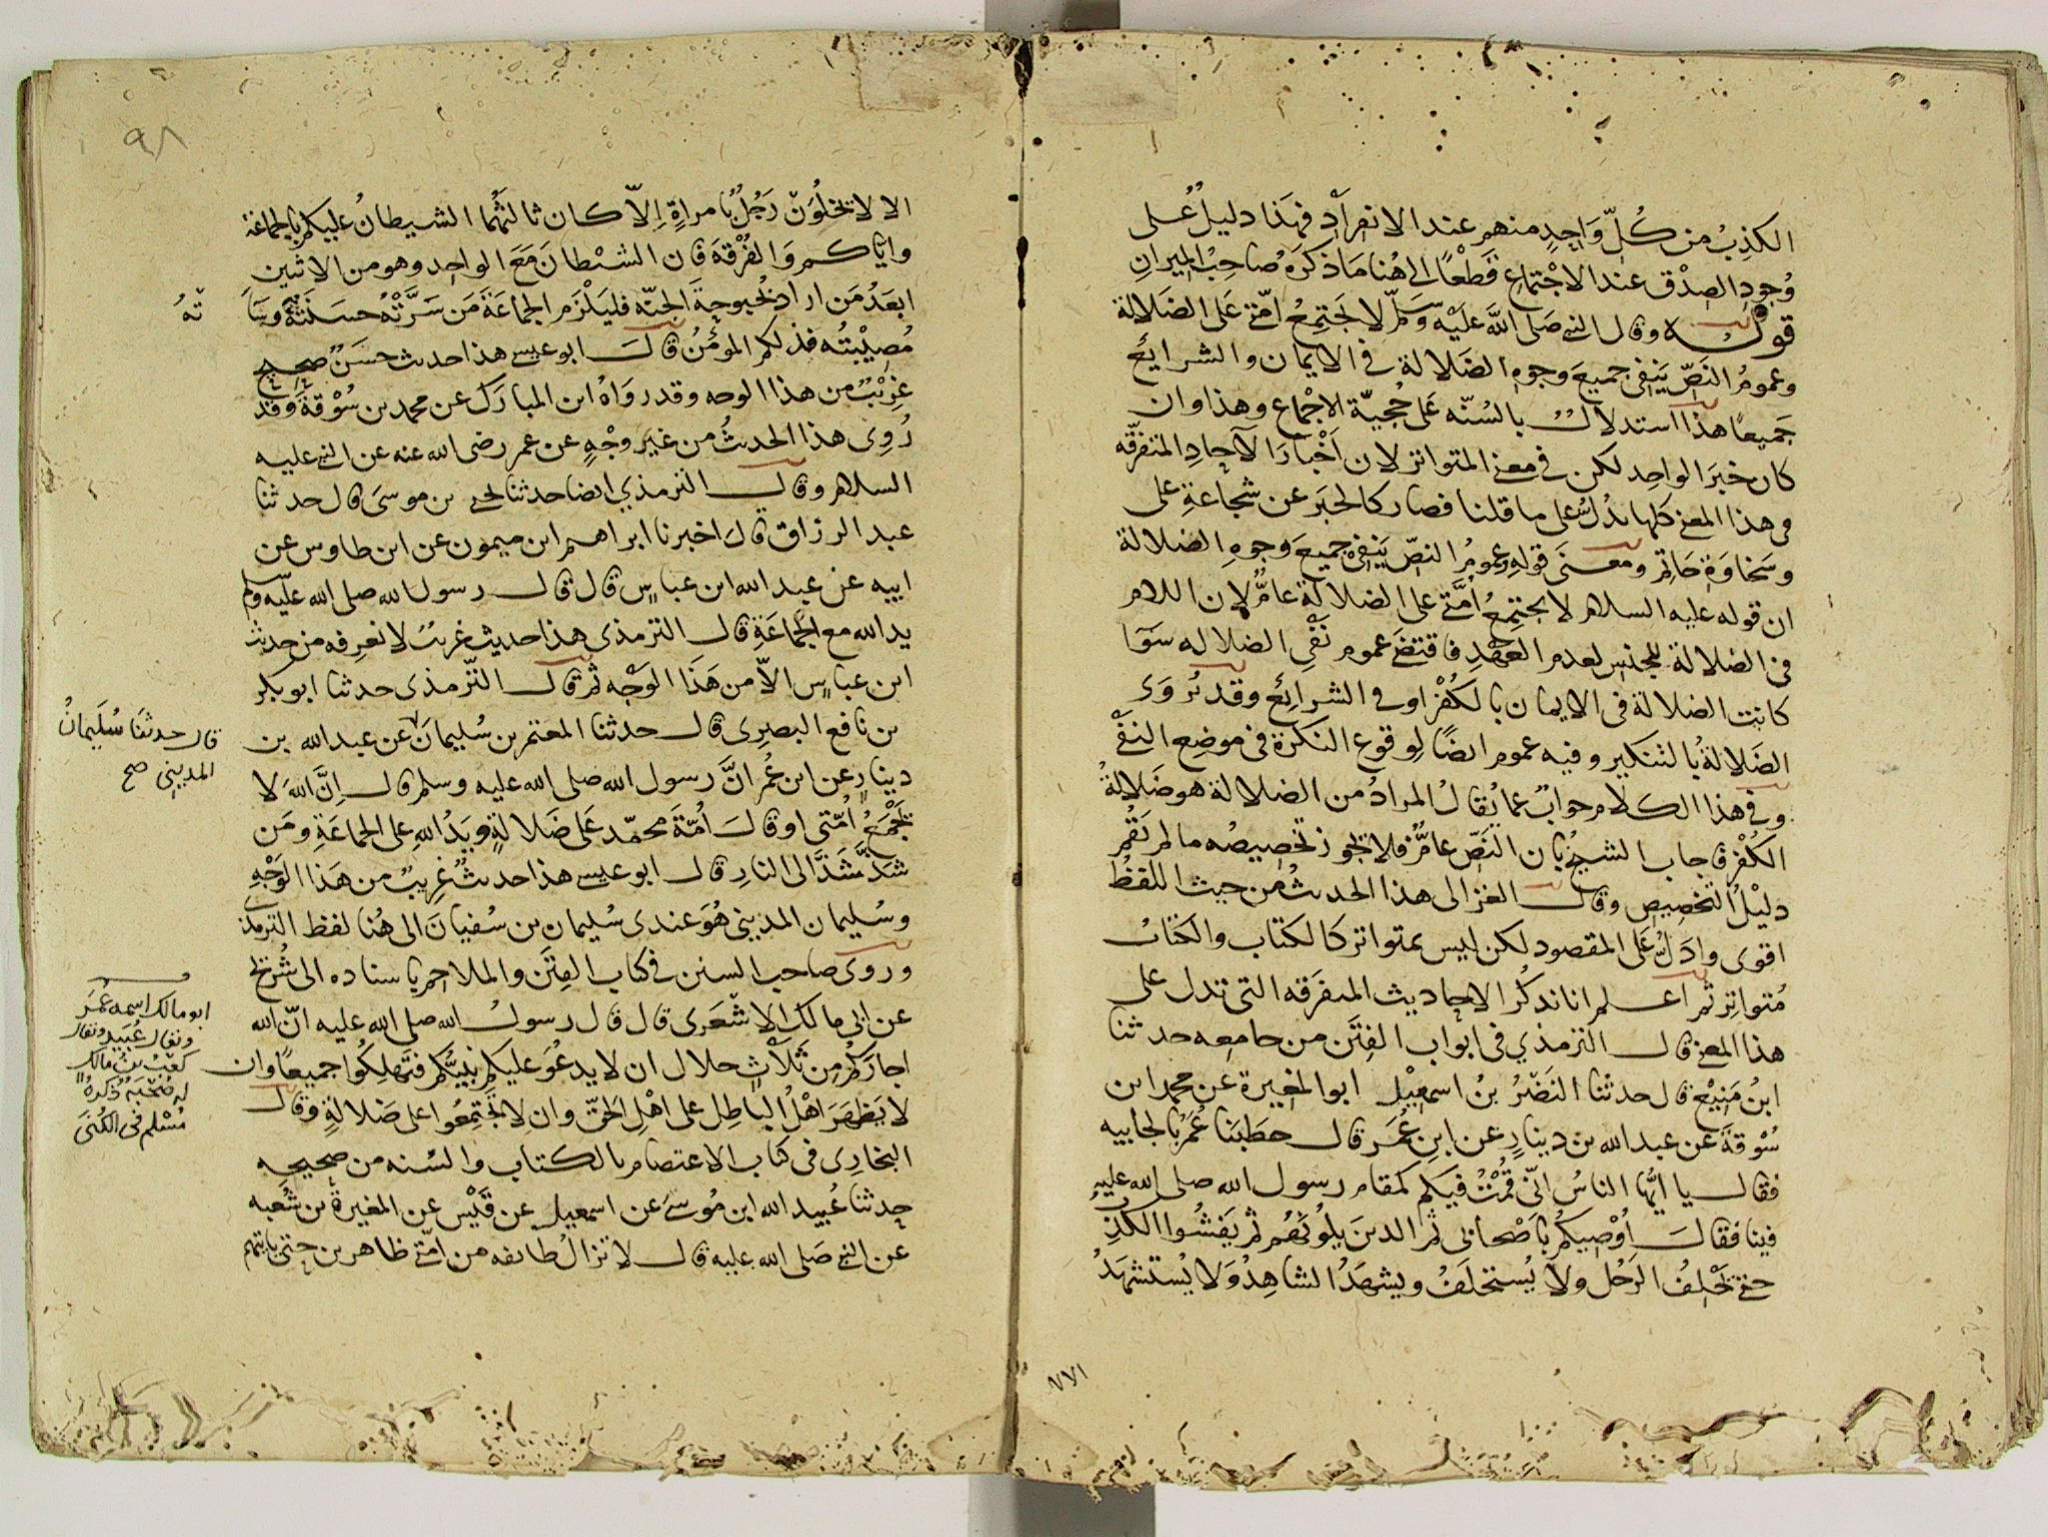 الكذب من كُلِّ وَاحِدٍ منهم عند الانفرادِ فهَذا دليلٌ على
وُجودِ الصِدْق عند الاجْتماعِ قَطْعًا الى هُنا مَا ذكرَهُ صَاحِبُ الميزانِ
قولـــه وقال النبي صَلى اللَّه عليْه وَسَلّم لا تجتمِعُ امّتي عَلى الضَلالة
وعمومُ النَصّ يَنفى جميعَ وجوهِ الضَلالة في الايمان والشرايعِ
جَميعًا هذا استدلالٌ بالسُنّه عَلى حُجيّة الاجْماع وهذا وان
كان خبَرَ الواحِد لكن في معنى المتواتر لان اَخْبارَ الآحادِ المتفرّقه
في هذا المعنى كلها تدُلّ على ما قلنا فصار كالخبَر عن شجاعةِ على
وسَخاوَةِ حَاتِم ومعنَى قولهِ وعمومُ النصّ يَنفى جميعَ وجوهِ الضلالة
ان قوله عليه السلام لا يجتمعُ امَّتي على الضلالة عامٌّ لان اللام
في الضلالة للجنس لعدم العَهْدِ فاقتضى عموم نَفْى الضلاله سَوَآ
كانت الضلالة فى الايمان بالكُفْر او في الشرايع وقد تروى
الضَلالةُ بالتنكير وفيه عموم ايضًا لِوقوع النكرة فى موضِع النفى
وفى هذا الكلام جوابٌ عما يُقالُ المرادُ من الضلالة هو ضَلالةُ
الكُفْر فاجاب الشيخُ بان النَصّ عامٌّ فلا يجوز تخصيصُه ما لم يَقُم
دليْلُ التخصيص وقال الغزالى هذا الحديثُ من حيث اللفظُ
اقوى وادَلّ عَلى المقصود لكن ليس بمتواتر كالكتاب والكتابُ
مُتواتر ثم اعلم انا نذكُر الاحاديث المتفرقه التى تدل على
هذا المعنى قال الترمذي فى ابواب الفِتَن من جامعه حدثنا
ابنُ مَنيْع قال حدثنا النَضْرُ بنُ اسمعيْل ابو المغيرة عن محمد ابن
سُوْقةَ عن عبد الله بن دينارٍ عن ابنِ عُمَر قال خطَبَنا عُمَرُ بالجابيه
فقال يا ايّها الناسُ انّى قُمْتُ فيكم كمقام رسول الله صلى الله عليه
فينا فقالَ اُوْصيكُم باَصْحابى ثم الذين يلُونَهُم ثم يَفشُوا الكذبُ
حتى يَحْلِفُ الرَجُل ولا يُستحلَفُ ويشهَدُ الشاهِدُ ولا يُستشهَدُ
٧٧١
٩٨
الا لا يخلُوَنّ رَجُلٌ بامراةٍ اِلاّ كان ثالثَهُما الشيطانُ عليكم بالجماعَة
واياكم وَالفُرْقةَ فان الشيْطانَ مَعَ الواحِد وهو من الاثنين
ابعَدُ مَن اراد بُحبوحةَ الجنّه فليَلْزَم الجماعَةَ مَن سَرَّتْهُ حسَنتُهُ وسَاَ
تْهُ
مُصِيْبتُه فذلكم المؤمنُ قالَ ابو عيسى هذا حديث حسَنٌ صحيح
غريْبٌ من هذا الوجه وقد روَاهُ ابن المبارَك عن محمد بن سُوْقةَ وقد
رُوِى هذا الحديثُ من غير وجْهٍ عن عمر رضى الله عنه عن النبي عليه
السلام وقال الترمذي ايضا حدثنا يحيى بن موسَى قال حدثنا
عبد الرزاق قال اخبرنا ابراهيم ابن ميمون عن ابن طاوس عن
ابيه عن عبد الله ابن عباسٍ قال قال رسول الله صلى الله عليه وسلم
يد الله مع الجماعَةِ قال الترمذى هذا حديث غريبٌ لا نعرفه من حديث
ابن عباسٍ الاّ من هَذَا الوَجْه ثم قال التّرمذى حدثنا ابو بكر
بن نافع البصرِى قال حدثنا المعتمر بن سُليمانَ عن عبد الله بن
قال حدثنا سُلَيمانُ
المدينى صح
دينارٍ عن ابن عُمرَ انَّ رسول الله صلى الله عليه وسلم قال اِنَّ اللهَ لا
يَجْمَعُ اُمّتى او قالَ اُمّةَ محمّد عَلى ضَلالةٍ ويَدُ اللهِ على الجماعَةِ ومَن
شَذَّ شَذَّ الى النارِ قال ابو عيسى هذا حديثٌ غريبٌ من هَذا الوَجْهِ
وسُليمان المدينى هُوَ عندى سُليمان بن سُفيانَ الى هُنا لفظ الترمذى
وروى صاحب السنن في كتاب الفِتَن والملاحم باسناده الى شُريْحٍ
عن ابى مالك الاشْعَرى قال قال رسولُ الله صلى الله عليه انّ الله
ابو مالك اسمه عُمَر
ويقال عُبَيد ويقال
كعْبُ بنُ مالك
له صُحْبَه ذكَرهُ
مُسْلم فى الكُنَى
اجارَكُم مِن ثَلاثِ خلال ان لا يدعُوَ عليكم نبيُّكم فتَهلِكُوا جميعًا وان
لا يَظهَرَ اهْلُ الباطِل على اهْلِ الحَقّ وان لا تجتمِعُوا على ضَلالةٍ وقال
البخارِى فى كتاب الاعتصام بالكتاب والسُنه من صحيحه
حدثنا عُبيد الله ابن مُوسَى عن اسمعيل عن قَيْس عن المغيرة بن شُعبه
عن النبي صَلى الله عليه قال لا تزالُ طائفه من امّتي ظاهرين حتى ياتيهم